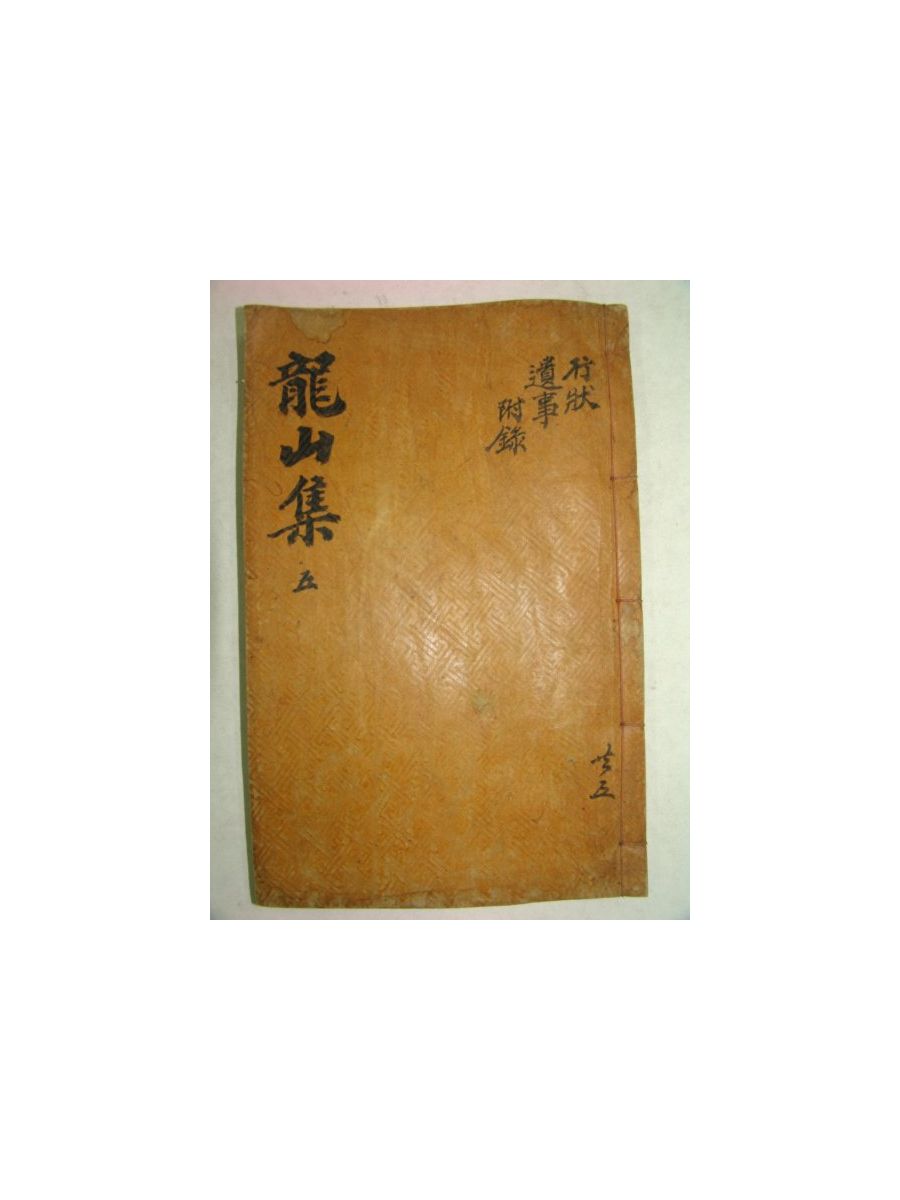 行狀
遺事
附錄
龍山集 五
共五